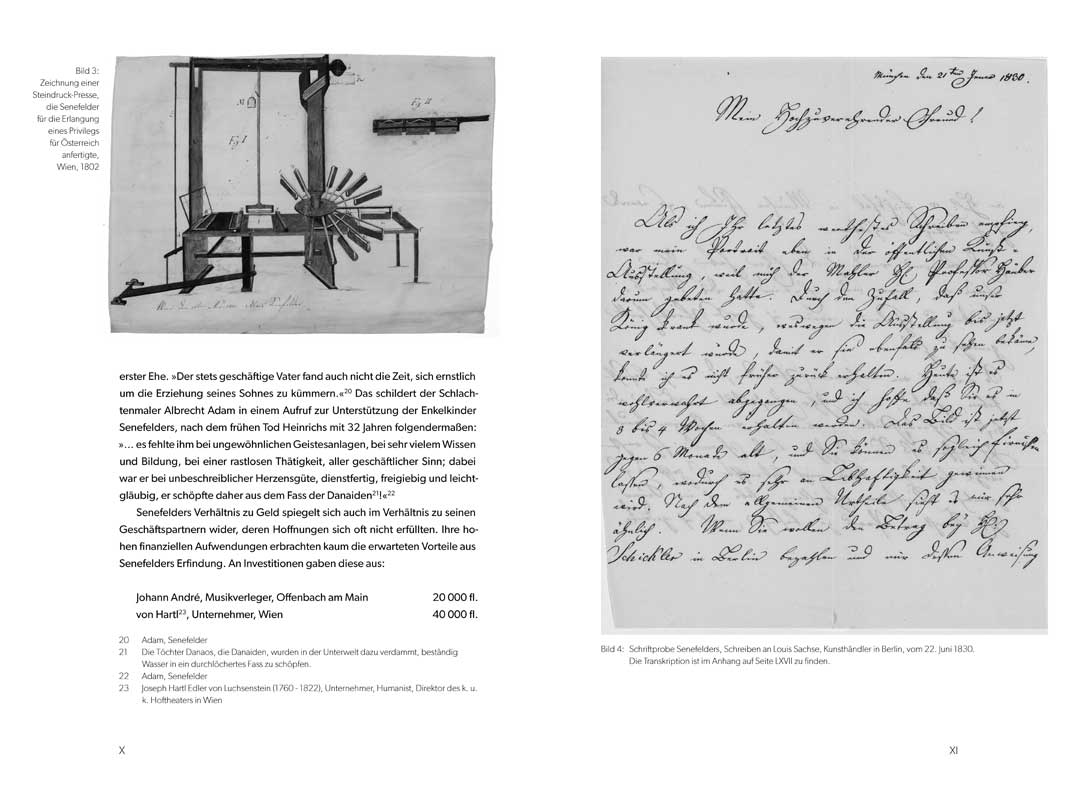 Bild 3:
Zeichnung einer
Steindruck-Presse,
die Senefelder
für die Erlangung
eines Privilegs
für Österreich
anfertigte,
Wien, 1802
Fig I
Fig II
erster Ehe. »Der stets geschäftige Vater fand auch nicht die Zeit, sich ernstlich
um die Erziehung seines Sohnes zu kümmern.«20 Das schildert der Schlach-
tenmaler Albrecht Adam in einem Aufruf zur Unterstützung der Enkelkinder
Senefelders, nach dem frühen Tod Heinrichs mit 32 Jahren folgendermaßen:
»… es fehlte ihm bei ungewöhnlichen Geistesanlagen, bei sehr vielem Wissen
und Bildung, bei einer rastlosen Thätigkeit, aller geschäftlicher Sinn; dabei
war er bei unbeschreiblicher Herzensgüte, dienstfertig, freigiebig und leicht-
gläubig, er schöpfte daher aus dem Fass der Danaiden21!«22
Senefelders Verhältnis zu Geld spiegelt sich auch im Verhältnis zu seinen
Geschäftspartnern wider, deren Hoffnungen sich oft nicht erfüllten. Ihre ho-
hen finanziellen Aufwendungen erbrachten kaum die erwarteten Vorteile aus
Senefelders Erfindung. An Investitionen gaben diese aus:
Johann André, Musikverleger, Offenbach am Main 20 000 fl.
von Hartl23, Unternehmer, Wien 40 000 fl.
20 Adam, Senefelder
21 Die Töchter Danaos, die Danaiden, wurden in der Unterwelt dazu verdammt, beständig
Wasser in ein durchlöchertes Fass zu schöpfen.
22 Adam, Senefelder
23 Joseph Hartl Edler von Luchsenstein (1760 - 1822), Unternehmer, Humanist, Direktor des k. u.
k. Hoftheaters in Wien
X
München den 21ten Juny 1830.
Mein Hochzuverehrender Freund!
Als ich Ihr letztes werthestes Schreiben empfieng,
war mein Portrait eben in der öffentlichen Kunst-
Ausstellung, weil mich der Mahler H. Professor Hauber
darum gebeten hatte. Durch den Zufall, daß unser
König krank wurde, weswegen die Ausstellung bis jetzt
verlängert wurde, damit er sie ebenfalls zu sehen bekäme,
konnte ich es nicht früher zurück erhalten. Heute ist es
wohlverwahrt abgegangen, und ich hoffe daß Sie es in
3 bis 4 Wochen erhalten werden. Das Bild ist jetzt
gegen 6 Monate alt, und Sie können es sogleich firnissen
lassen, wodurch es sehr an Lebhaftigkeit gewinnen
wird. Nach dem allgemeinen Urtheile sieht es mir sehr
ähnlich. Wenn Sie wollen den Betrag bey H.
Schickler in Berlin bezahlen und mir dessen Anweisung
Bild 4: Schriftprobe Senefelders, Schreiben an Louis Sachse, Kunsthändler in Berlin, vom 22. Juni 1830.
Die Transkription ist im Anhang auf Seite LXVII zu finden.
XI